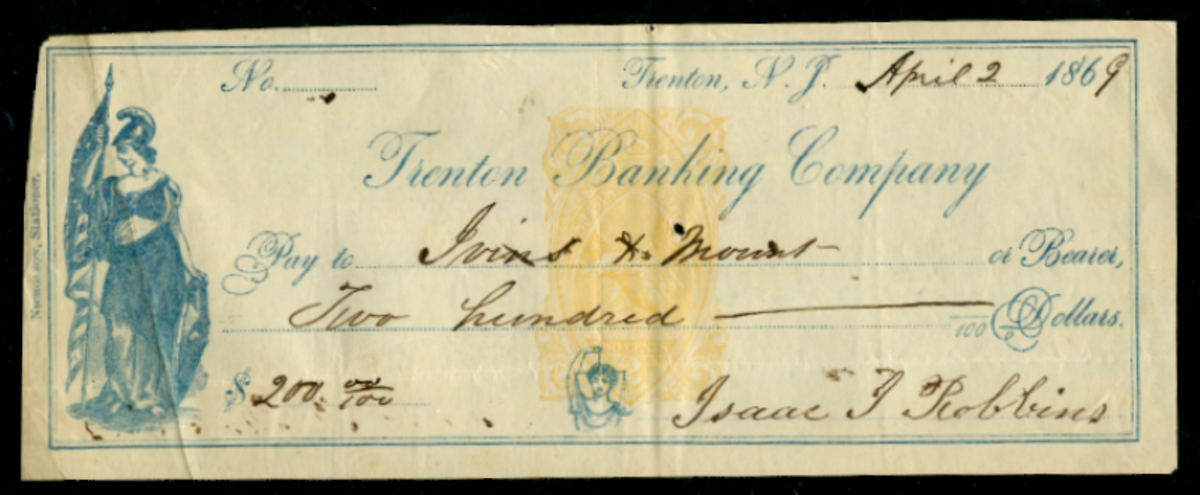 No. Trenton, N. J. April 2 1869
Trenton Banking Company
Pay to Ivins & Mount or Bearer,
Two hundred /100 Dollars.
$200. 00/100
Isaac T Robbins
Stationer.